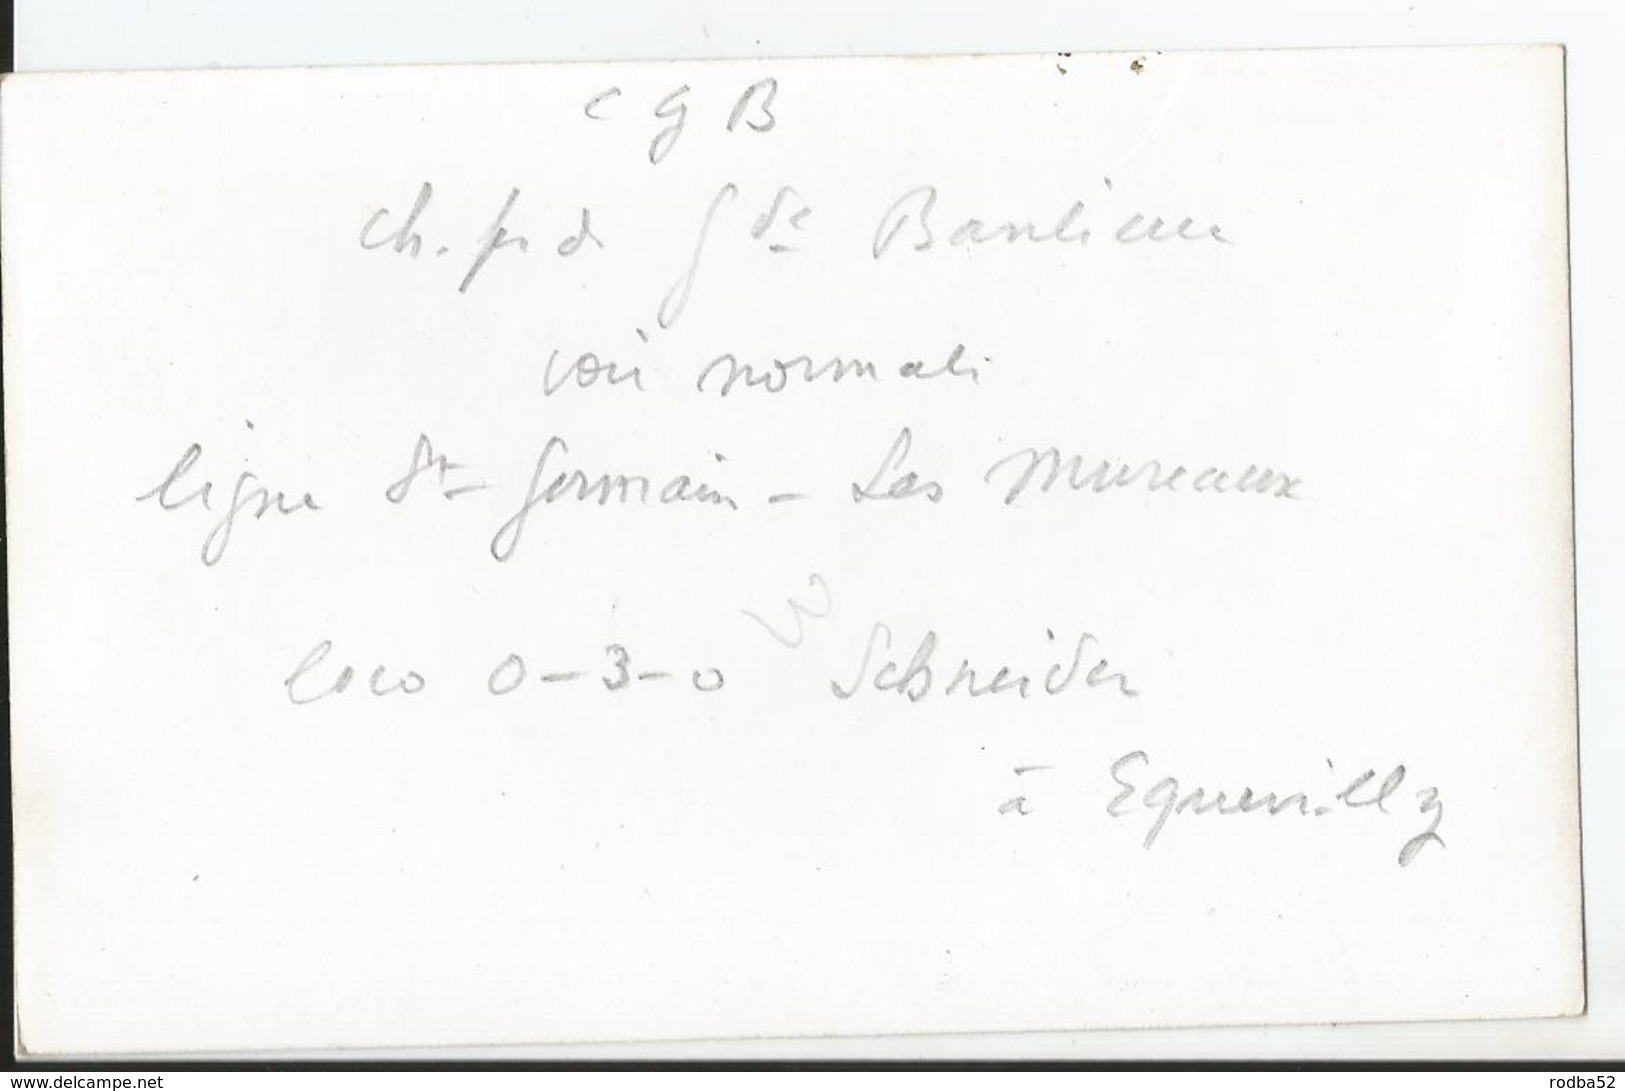 C G B
ch. fer de Gde Banlieue
voie normale
ligne St-Germain - Les Mureaux
loco 0-3-0 Schneider
à Equevilly
www.delcampe.net
rodba52